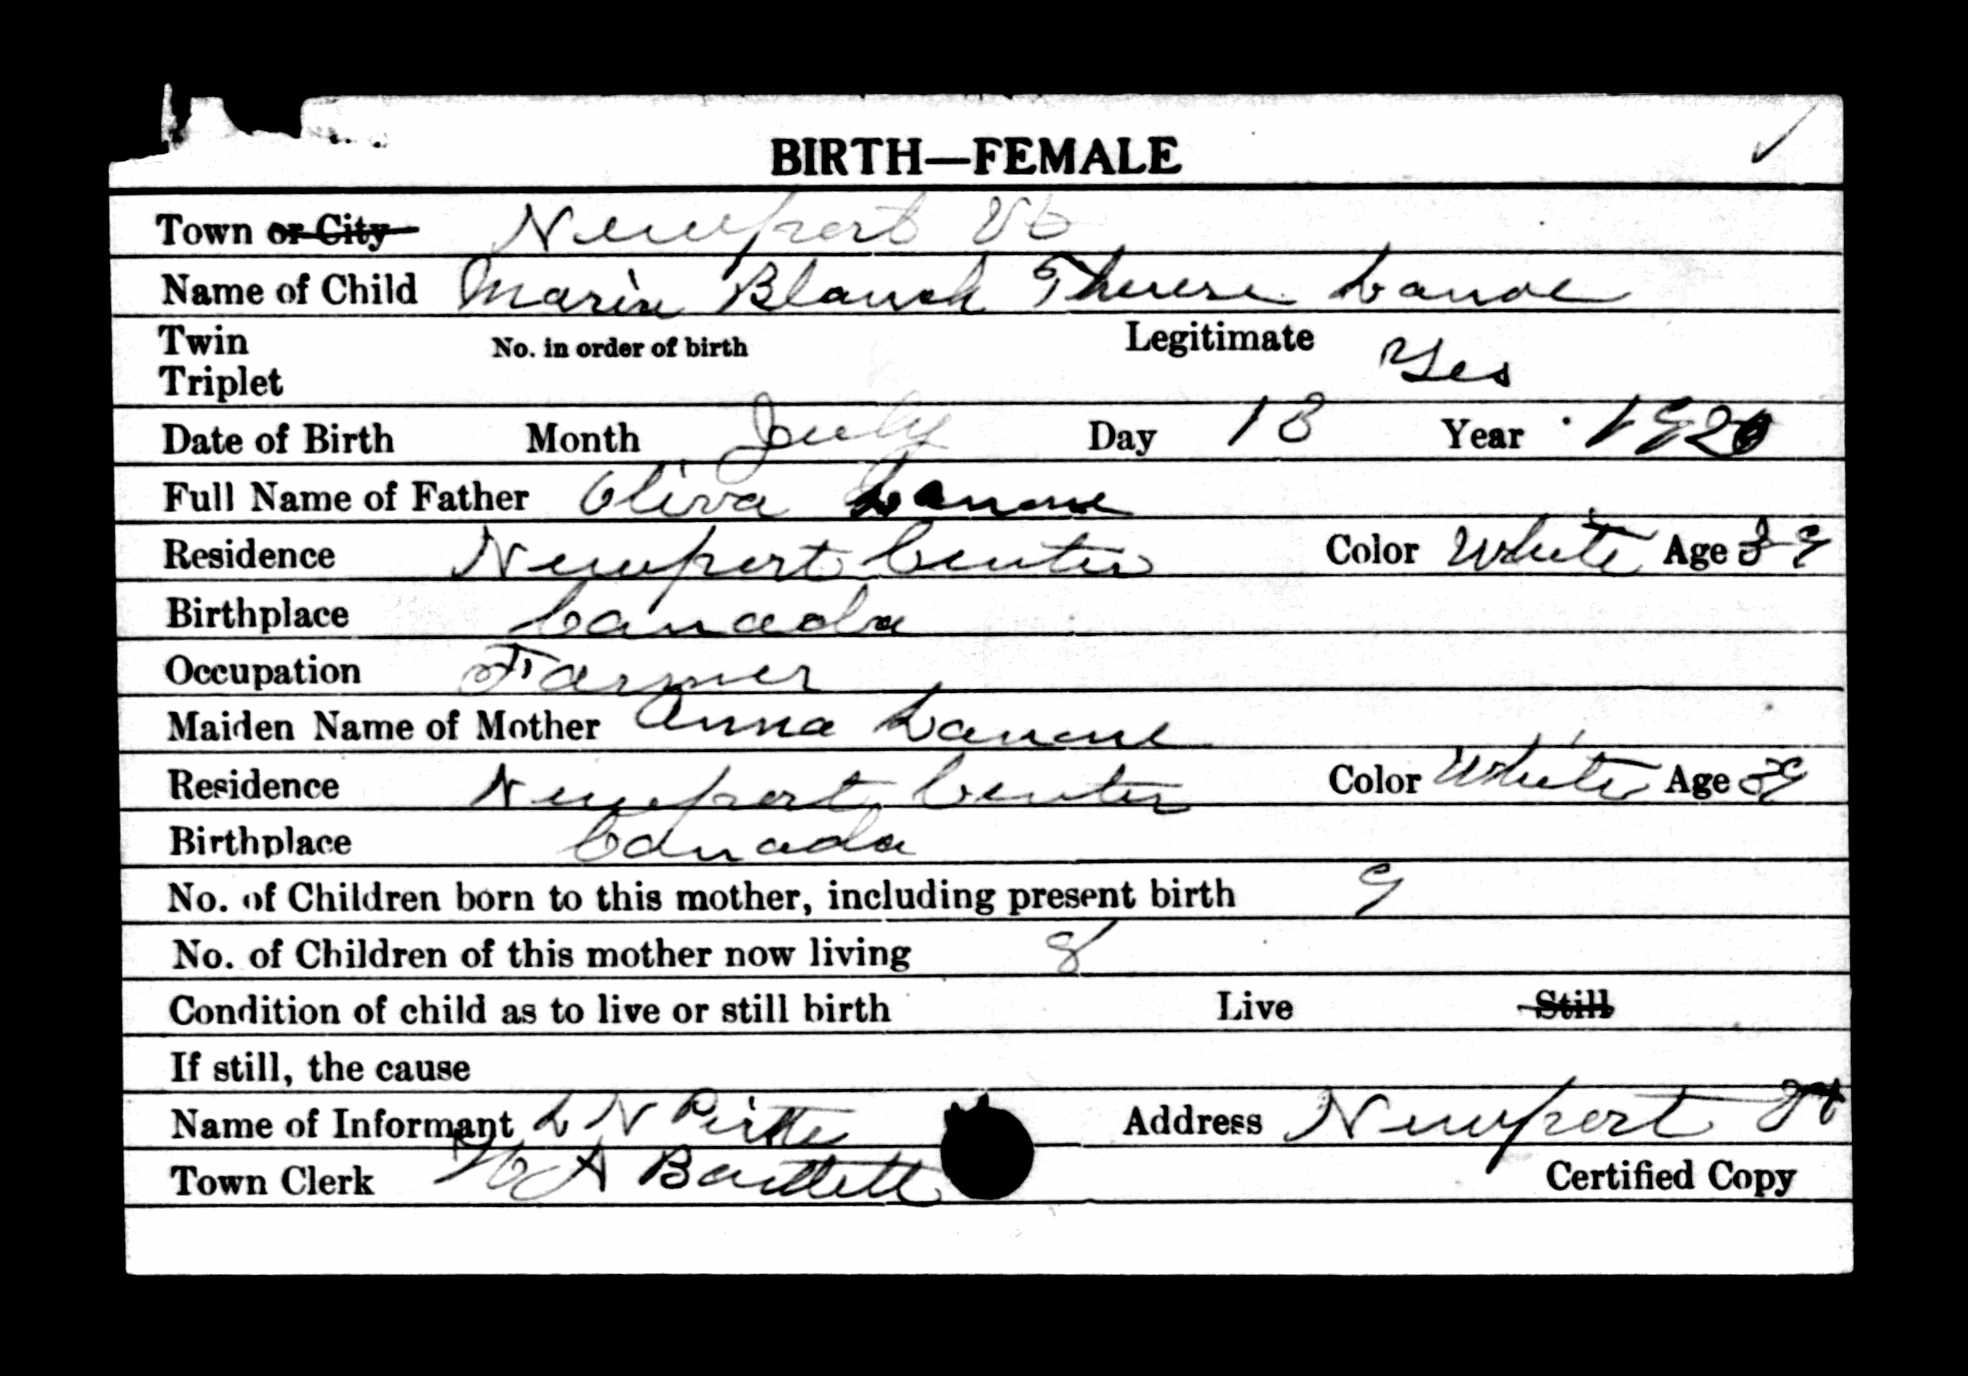 BIRTH—FEMALE
Town or City Newport Vt
Name of Child Marie Blanch Therese
Twin No. in order of birth Legitimate Yes
Triplet
Date of Birth Month July Day 18 Year 1920
Full Name of Father Oliva
Residence Newport Center Color White Age 39
Birthplace Canada
Occupation Farmer
Maiden Name of Mother Anna
Residence Newport Center Color White Age 39
Birthplace Canada
No. of Children born to this mother, including present birth 9
No. of Children of this mother now living 8
Condition of child as to live or still birth Live Still
If still, the cause
Name of Informant L N Address Newport Vt
Town Clerk A Bartlett Certified Copy